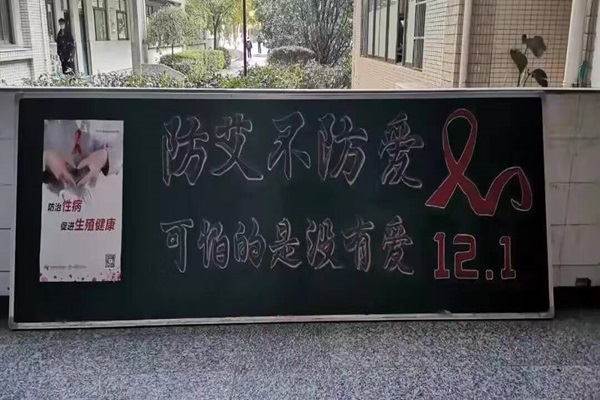 防治性病
促进生殖健康
防艾不防爱
可怕的是没有爱
12.1